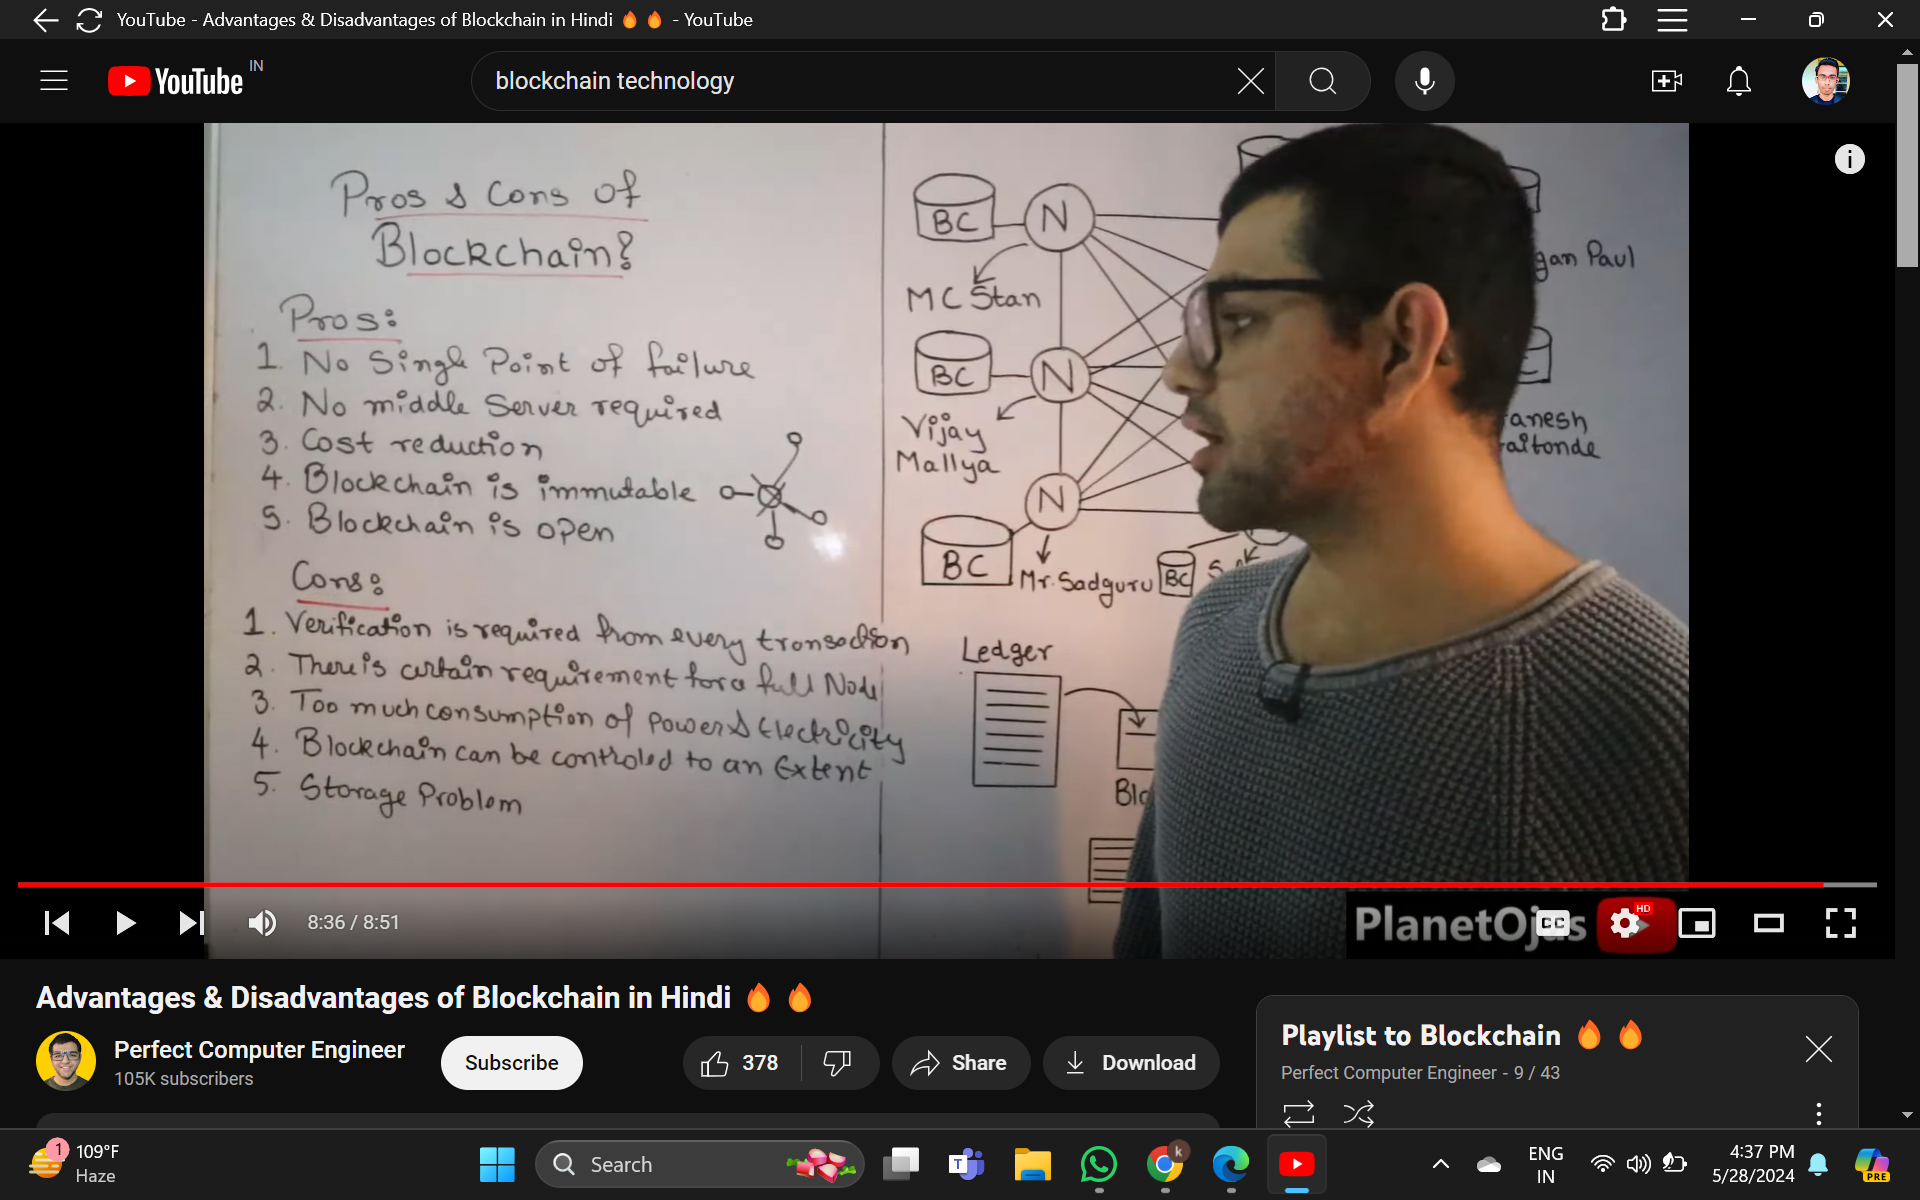 YouTube - Advantages & Disadvantages of Blockchain in Hindi 🔥 🔥 - YouTube
YouTube IN
blockchain technology
Pros & Cons of
Blockchain?
Pros:
1. No Single Point of failure
2. No middle Server required
3. Cost reduction
4. Blockchain is immutable
5. Blockchain is open
Cons:
1. Verification is required from every transaction
2. There is certain requirement for a full Node
3. Too much consumption of Power & Electricity
4. Blockchain can be controled to an Extent
5. Storage Problem
BC
N
MC Stan
BC
N
Vijay
Mallya
N
BC
Mr. Sadguru
BC
gan Paul
anesh
aitonde
Ledger
Blo
8:36 / 8:51
PlanetOjas
CC
HD
Advantages & Disadvantages of Blockchain in Hindi 🔥 🔥
Perfect Computer Engineer
105K subscribers
Subscribe
378
Share
Download
Playlist to Blockchain 🔥 🔥
Perfect Computer Engineer - 9 / 43
1
109°F
Haze
Search
T
k
ENG
IN
4:37 PM
5/28/2024
PRE